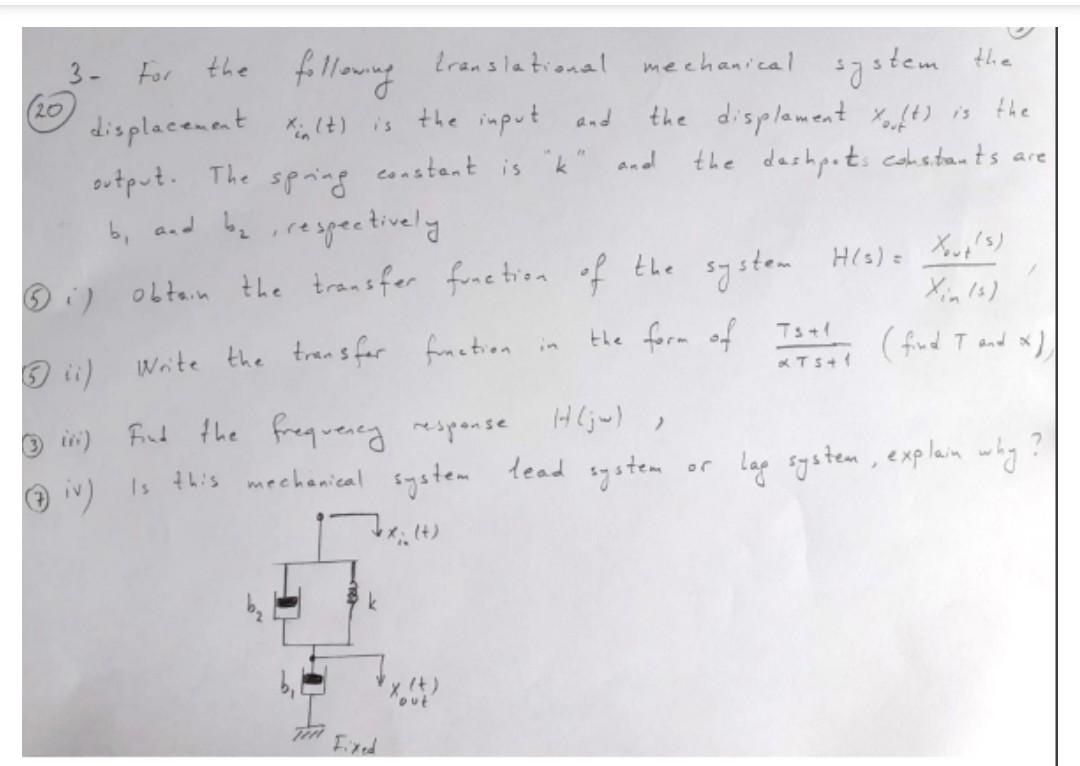 3- For the following translational mechanical system the
(20) displacement x_in(t) is the input and the displament x_out(t) is the
output. The spring constant is "k" and the dashpots constants are
b₁ and b₂, respectively
(5) i) Obtain the transfer function of the system H(s) = X_out(s) / X_in(s),
(5) ii) Write the transfer function in the form of Ts+1 / αTs+1 (find T and α),
(3) iii) Find the frequency response H(jw),
(7) iv) Is this mechanical system lead system or lag system, explain why?
x_in(t)
b₂ k
b₁ x_out(t)
Fixed